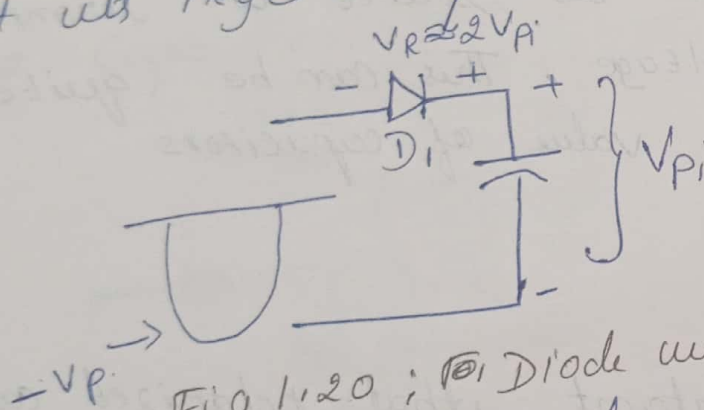 VR≈2Vpi
- + +
D1
Vpi
-
-Vp
Fig 1.20 : Diode